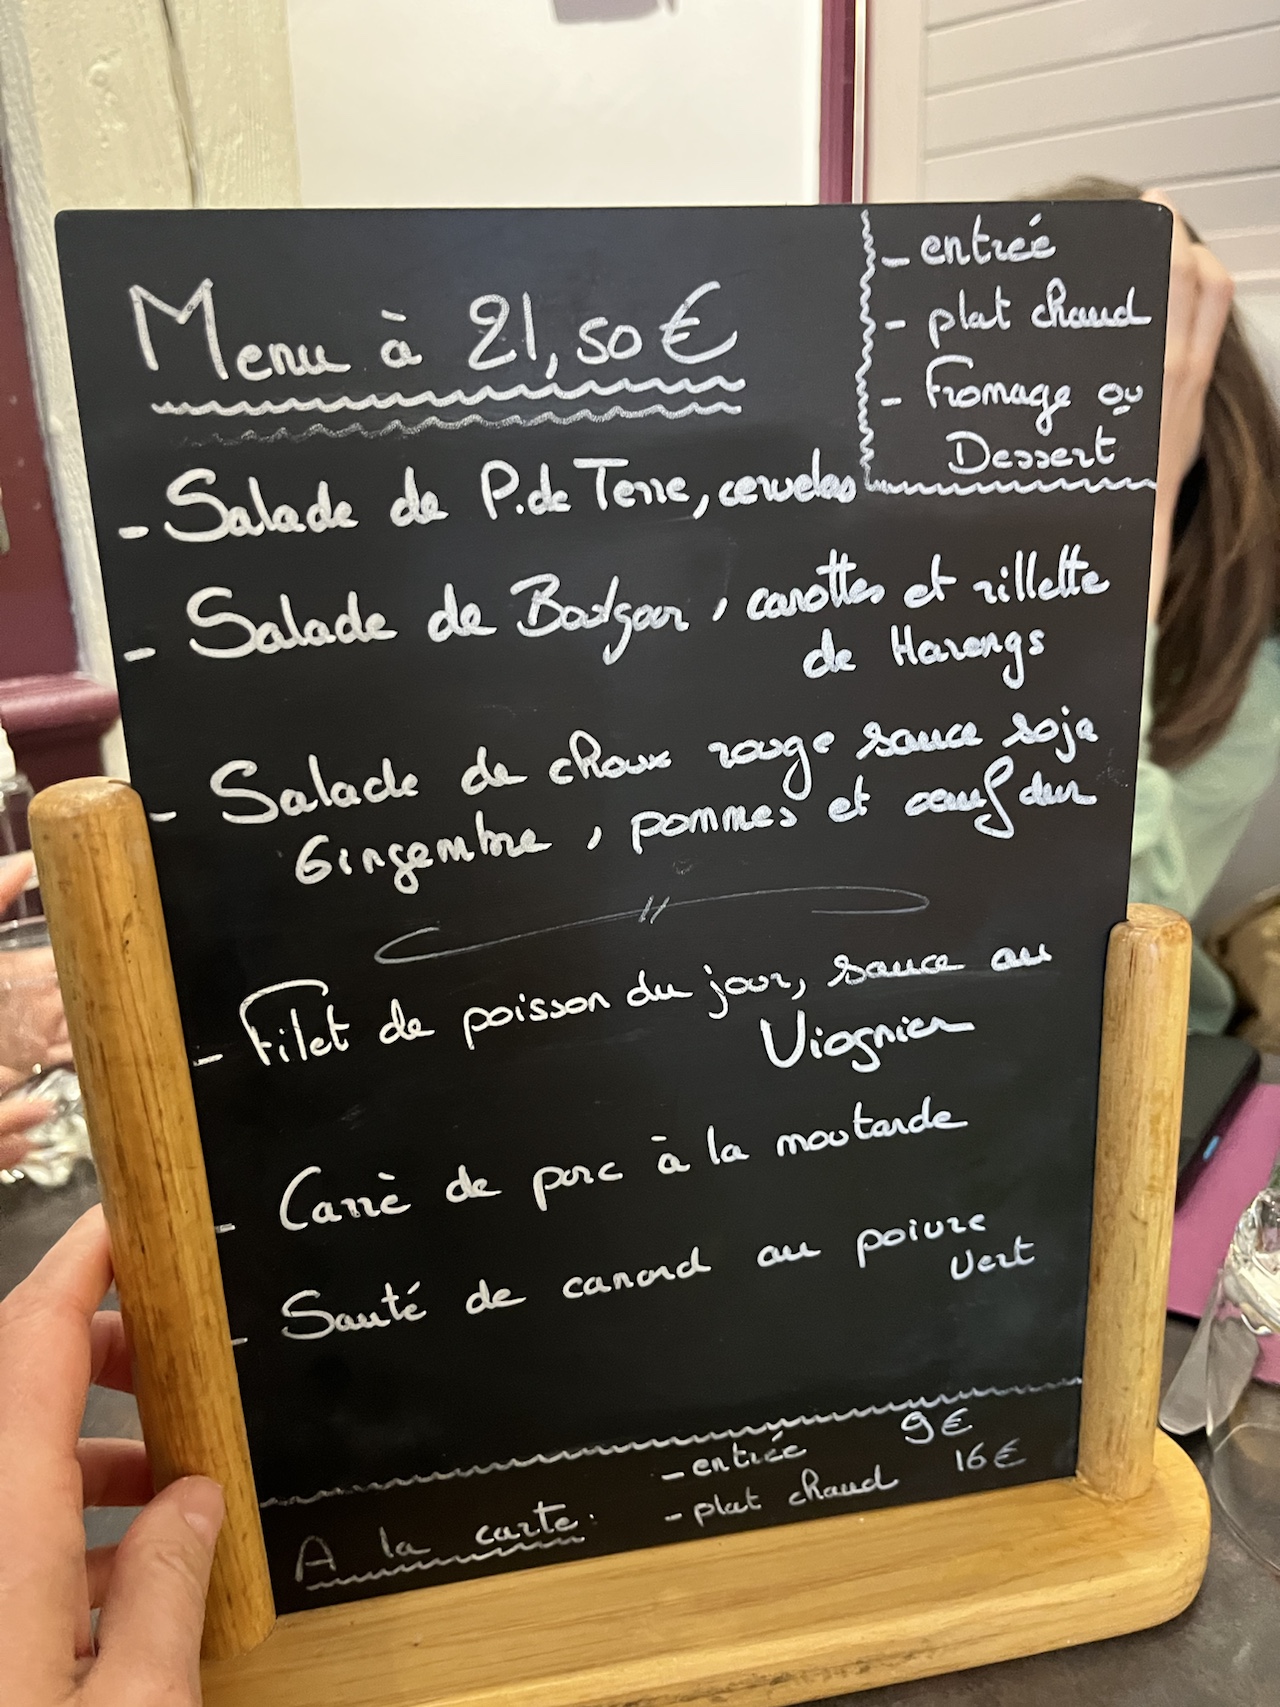 Menu à 21,50€
- entrée
- plat chaud
- Fromage ou
Dessert
- Salade de P.de Terre, cervelas
- Salade de Boulgour, carottes et rillette
de Harengs
- Salade de choux rouge sauce soja
Gingembre, pommes et oeuf dur
- Filet de poisson du jour, sauce au
Viognier
- Carrè de porc à la moutarde
- Sauté de canard au poivre
Vert
A la carte:
- entrée 9€
- plat chaud 16€